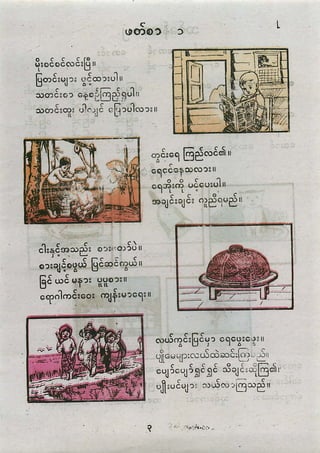 ဖတ်စာ ၁
မိုးစင်စင်လင်းပြီ။
ပြတင်းများ ဖွင့်ထားပါ။
သတင်းစာ နေ့စဉ်ကြည့်ရှုပါ။
သတင်းထူး ပါလျှင် ပြောပါလား။
တွင်းရေ ကြည်လင်၏။
ရေငင်နေသလား။
ရေအိုးကို ပင့်ပေးပါ။
အချင်းချင်း ကူညီရမည်။
ငါးနှင့်အသည်း စားတော်ပဲ။
စားချင့်စဖွယ် ပြင်ဆင်ကွယ်။
ခြင် ယင် မနား ပူပူစား။
ရောဂါကင်းဝေး ကျန်းမာရေး။
လယ်ကွင်းပြင်မှာ ရေဖွေးဖွေး။
ပျိုမေများလယ်ထဲဆင်းကြသည်။
ပျော်ပျော်ရွှင်ရွှင် သီချင်းဆိုကြ၏။
ပျိုးပင်များ လယ်လာကြသည်။
၃